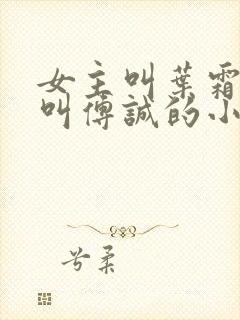 女主叫葉霜
叫傅誠的小
兮柔